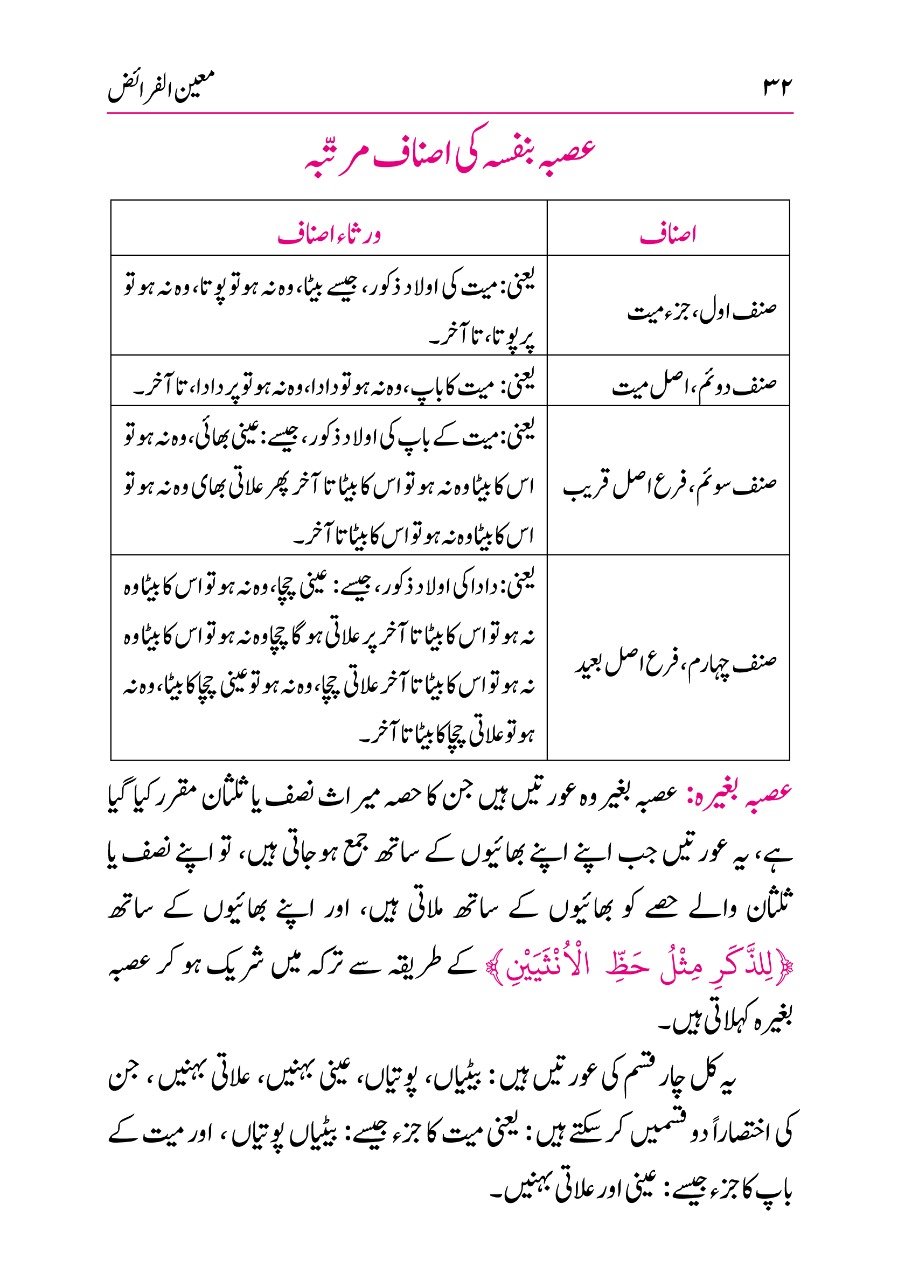 ۳۲ معین الفرائض
عصبہ بنفسہ کی اصناف مرتّبہ
اصناف ورثاء اصناف
صنف اول، جزء میت
یعنی: میت کی اولاد ذکور، جیسے بیٹا، وہ نہ ہو تو پوتا، وہ نہ ہو تو
پرپوتا، تا آخر۔
صنف دوئم، اصل میت
یعنی: میت کا باپ، وہ نہ ہو تو دادا، وہ نہ ہو تو پر دادا، تا آخر۔
صنف سوئم، فرع اصل قریب
یعنی: میت کے باپ کی اولاد ذکور، جیسے: عینی بھائی، وہ نہ ہو تو
اس کا بیٹا وہ نہ ہو تو اس کا بیٹا تا آخر پھر علاتی بھای وہ نہ ہو تو
اس کا بیٹا وہ نہ ہو تو اس کا بیٹا تا آخر۔
صنف چہارم، فرع اصل بعید
یعنی: دادا کی اولاد ذکور، جیسے: عینی چچا، وہ نہ ہو تو اس کا بیٹا وہ
نہ ہو تو اس کا بیٹا تا آخر پر علاتی ہو گا چچا وہ نہ ہو تو اس کا بیٹا وہ
نہ ہو تو اس کا بیٹا تا آخر علاتی چچا، وہ نہ ہو تو عینی چچا کا بیٹا، وہ نہ
ہو تو علاتی چچا کا بیٹا تا آخر۔
عصبہ بغیرہ: عصبہ بغیر وہ عورتیں ہیں جن کا حصہ میراث نصف یا ثلثان مقرر کیا گیا
ہے، یہ عورتیں جب اپنے اپنے بھائیوں کے ساتھ جمع ہو جاتی ہیں، تو اپنے نصف یا
ثلثان والے حصے کو بھائیوں کے ساتھ ملاتی ہیں، اور اپنے بھائیوں کے ساتھ
﴿لِلذَّكَرِ مِثْلُ حَظِّ الْاُنْثَيَيْنِ﴾ کے طریقہ سے ترکہ میں شریک ہو کر عصبہ
بغیرہ کہلاتی ہیں۔
یہ کل چار قسم کی عورتیں ہیں: بیٹیاں، پوتیاں، عینی بہنیں، علاتی بہنیں، جن
کی اختصاراً دو قسمیں کر سکتے ہیں: یعنی میت کا جزء جیسے: بیٹیاں پوتیاں، اور میت کے
باپ کا جزء جیسے: عینی اور علاتی بہنیں۔